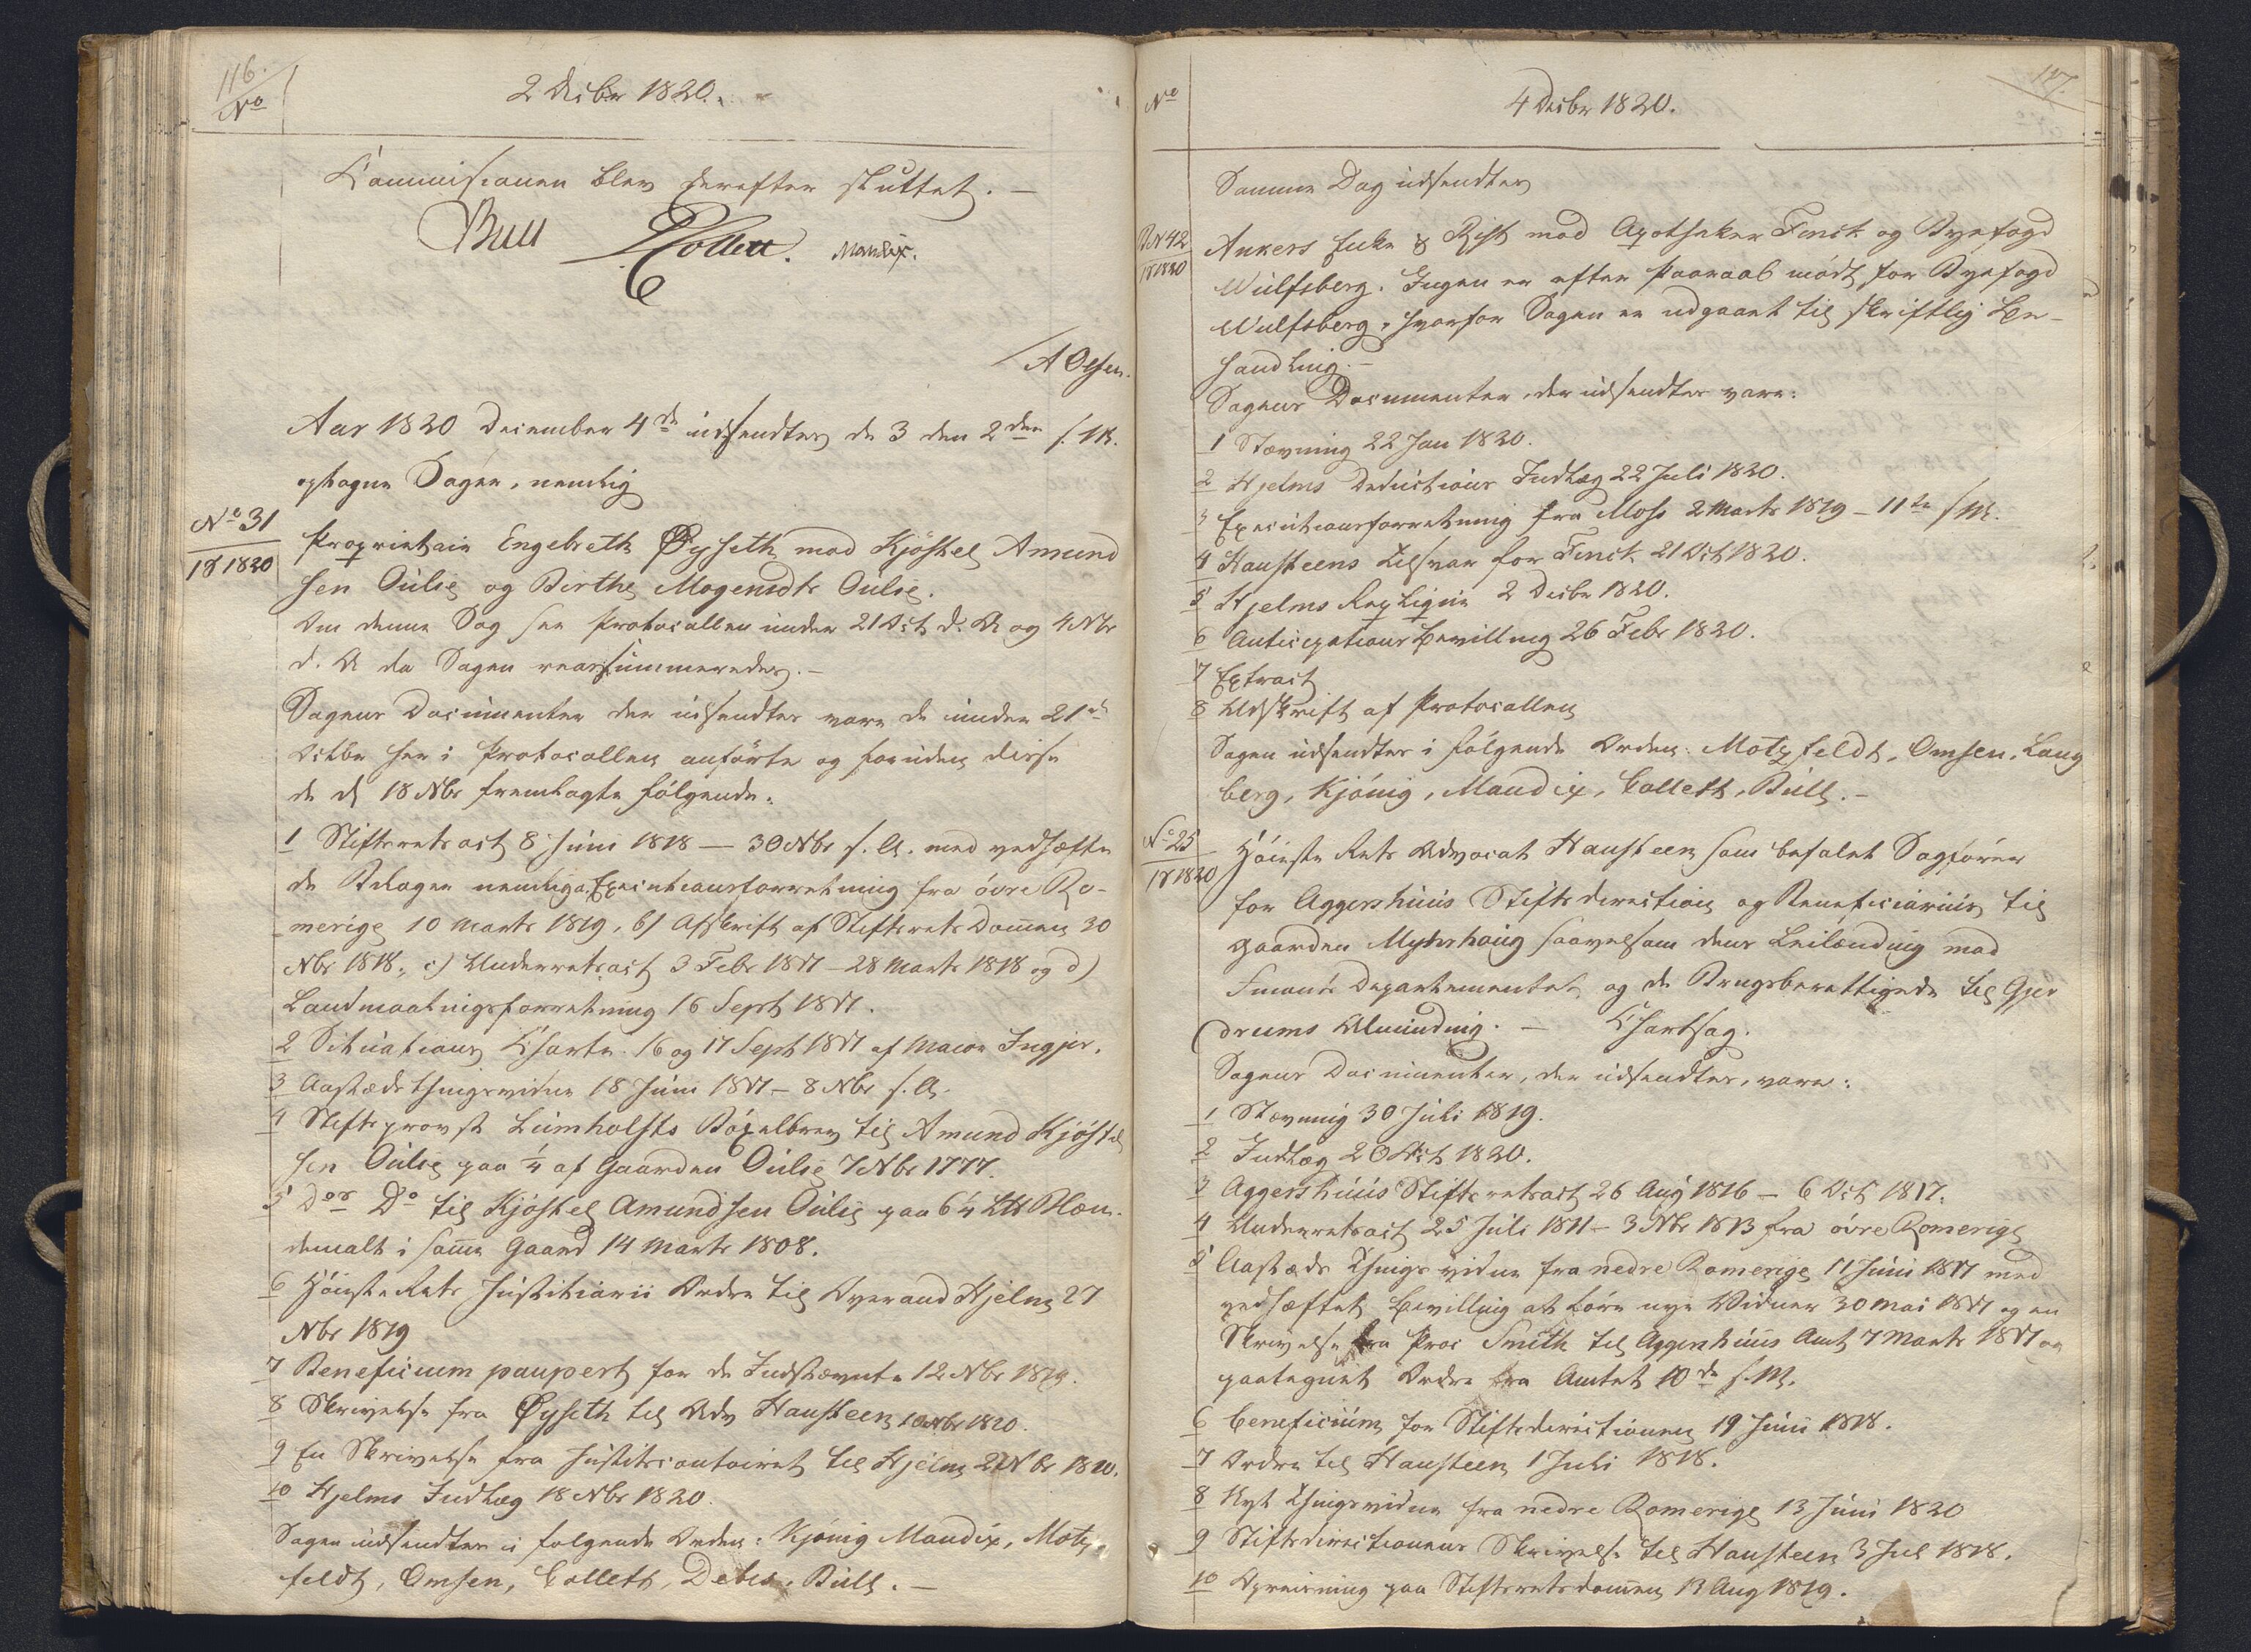 116.
No
2 Decbr 1820.
Commissionen blev derefter sluttet. —
Bull Collett. Mandix.
A Olsen.
Aar 1820 December 4de udsendtes de 3 den 2den s. M.
optagne Sager, nemlig
No 31
1820
Proprietair Engebreth Øyseth mod Kjøstel Amund
sen Oulie og Birthe Mogensdtr Oulie.
Om denne Sag see Protocollen under 21 Oct d. A og 4 Nbr
d. A da Sagen reassummeredes. —
Sagens Documenter der udsendtes vare de under 21de
Octbr her i Protocollen anførte og foruden disse
de d 18 Nbr fremlagte følgende:
1 Stiftsretsact 8 Juni 1818 — 30 Nbr s. A. med vedhæfte
de Bilager nemlig a, Executionsforretning fra øvre Ro-
merige 10 Marts 1819, b) Afskrift af Stiftsrets Dommen 30
Nbr 1818, c) Underretsact 3 Febr 1817 — 28 Marts 1818 og d)
Landmaalingsforretning 16 Sept 1817.
2 Situations Charte 16 og 17 Sept 1817 af Maior Ingier.
3 Aastæds thingsvidne 18 Juni 1817 — 8 Nbr s. A.
4 Stiftsprovst Lumholtz Bøxelbrev til Amund Kjøstel
sen Oulie paa 1/4 af Gaarden Oulie 7 Nbr 1777.
5 Dos Do til Kjøstel Amundsen Oulie paa 6 1/4 Blan-
demalt i samme Gaard 14 Marts 1808.
6 Høieste Rets Justitiarii Ordre til Overaud Hjelm 27
Nbr 1819
7 Beneficium paupert for de Indstævnte 12 Nbr 1819.
8 Skrivelse fra Øyseth til Adv Hansteen 10 Nbr 1820.
9 En Skrivelse fra Justitscontoiret til Hjelm 2 Nbr 1820.
10 Hjelms Indlæg 18 Nbr 1820.
Sagen udsendtes i følgende Orden: Kjønig Mandix, Motz
feldt, Omsen, Collett, Debes, Bull. —
No
4 Decbr 1820.
117.
Samme Dag udsendtes
No 42
1820
Ankers Enke & Rist mod Apotheker Finck og Byefogd
Wulfsberg. Ingen er efter Paaraab mødt for Byefogd
Wulfsberg, hvorfor Sagen er udgaaet til skriftlig Be-
handling. —
Sagens Documenter, der udsendtes vare:
1 Stævning 22 Jan 1820.
2 Hjelms Deductions Indlæg 22 Juli 1820.
3 Executionsforretning fra Moss 2 Marts 1819 — 11te s. M.
4 Hansteens Tilsvar for Finck 21 Oct 1820.
5 Hjelms Replique 2 Decbr 1820.
6 Anticipations Bevilling 26 Febr 1820.
7 Extract
8 Udskrift af Protocollen
Sagen udsendtes i følgende Orden: Motzfeldt, Omsen, Lang
berg, Kjønig, Mandix, Collett, Bull. —
No 25
1820
Høieste Rets Advocat Hansteen som befalet Sagfører
for Aggershuus Stiftsdirection og Beneficiarius til
Gaarden Myhrhoug saavelsom dens Leilænding mod
Finants Departementet og de Brugsberettigede til Gjer
drums Alminding. — Chartsag.
Sagens Documenter, der udsendtes, vare:
1 Stævning 30 Juli 1819.
2 Indlæg 20 Oct 1820.
3 Aggershuus Stiftsretsact 26 Aug 1816 — 6 Oct 1817.
4 Underretsact 25 Juli 1811 — 3 Nbr 1813 fra øvre Romerige
5 Aastæds Things vidne fra nedre Romerige 17 Juni 1817 med
vedhæftet Bevilling at føre nye Vidner 30 Mai 1817 og en
Skrivelse fra Proc Smith til Aggershuus Amt 7 Marts 1817 og
paategnet Ordre fra Amtet 10de s. M.
6 Beneficium for Stiftsdirectionen 19 Juni 1818.
7 Ordre til Hansteen 1 Juli 1818.
8 Nyt Thingsvidne fra nedre Romerige 13 Juni 1820
9 Stiftsdirectionens Skrivelse til Hansteen 3 Jul 1818.
10 Opreisning paa Stiftsretsdommen 13 Aug 1819.